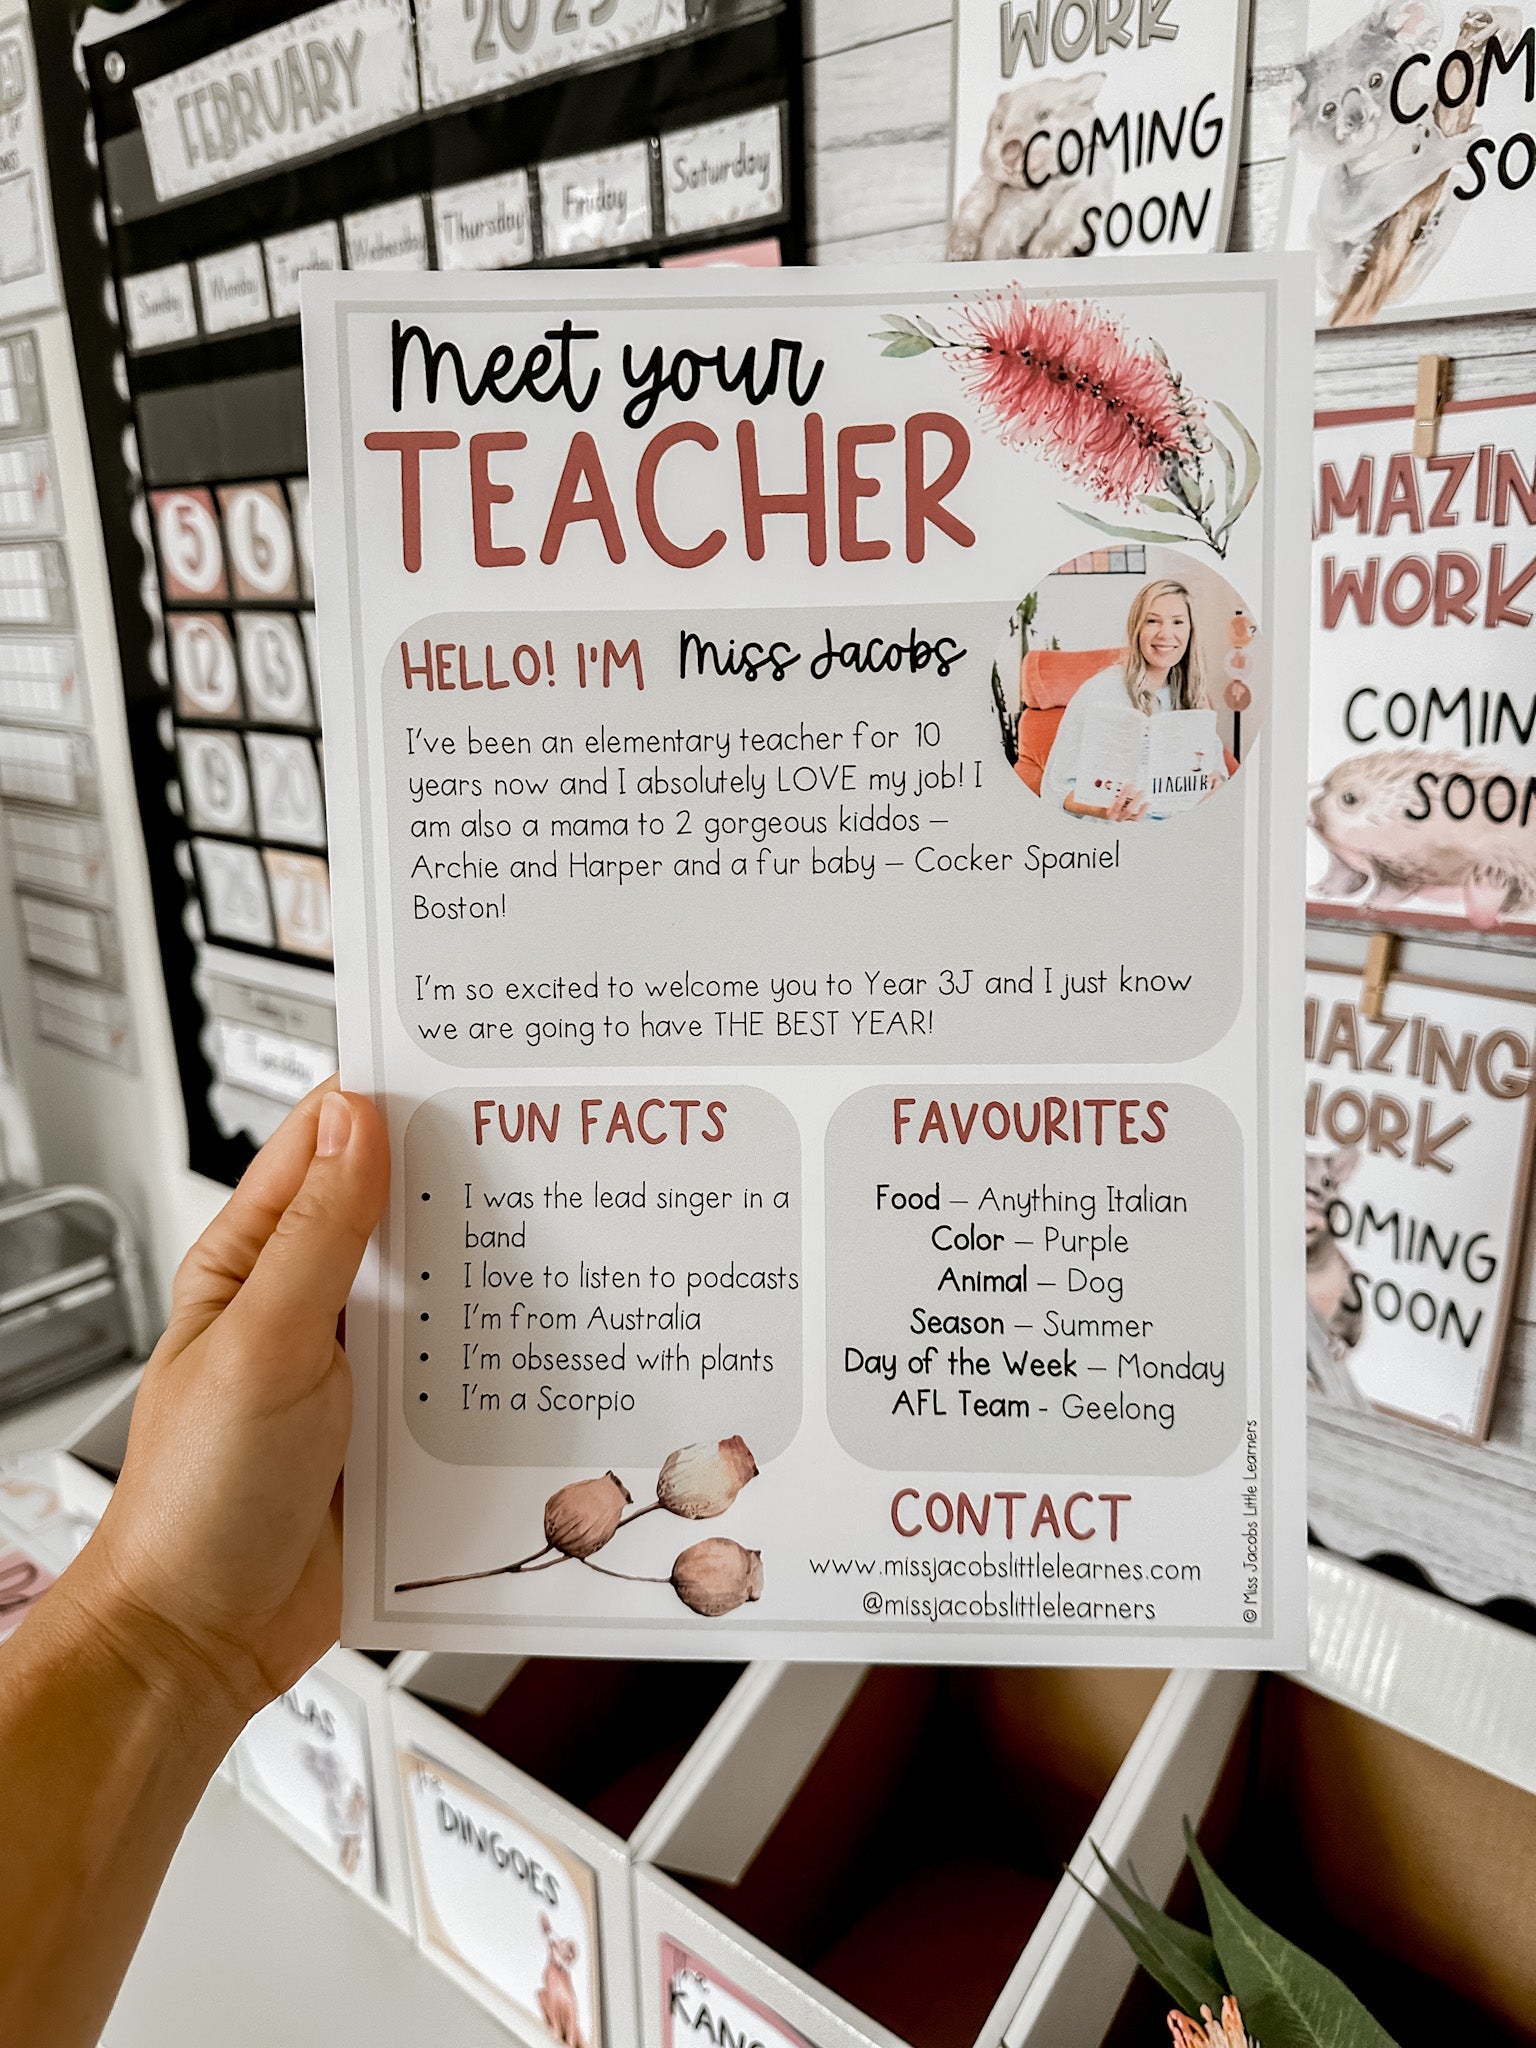 FEBRUARY
Sunday
Monday
Wednesday
Thursday
Friday
Saturday
5
6
12
13
19
20
26
27
Tuesday
WORK
COMING
SOON
Meet your
TEACHER
HELLO! I'M Miss Jacobs
I've been an elementary teacher for 10
years now and I absolutely LOVE my job! I
am also a mama to 2 gorgeous kiddos –
Archie and Harper and a fur baby – Cocker Spaniel
Boston!
I'm so excited to welcome you to Year 3J and I just know
we are going to have THE BEST YEAR!
TEACHER
FUN FACTS
• I was the lead singer in a
band
• I love to listen to podcasts
• I'm from Australia
• I'm obsessed with plants
• I'm a Scorpio
FAVOURITES
Food – Anything Italian
Color – Purple
Animal – Dog
Season – Summer
Day of the Week – Monday
AFL Team - Geelong
CONTACT
www.missjacobslittlelearnes.com
@missjacobslittlelearners
© Miss Jacobs Little Learners
COM
SO
MAZIN
WORK
COMIN
SOON
AZING
ORK
OMING
SOON
LAS
the
DINGOES
the
KANG